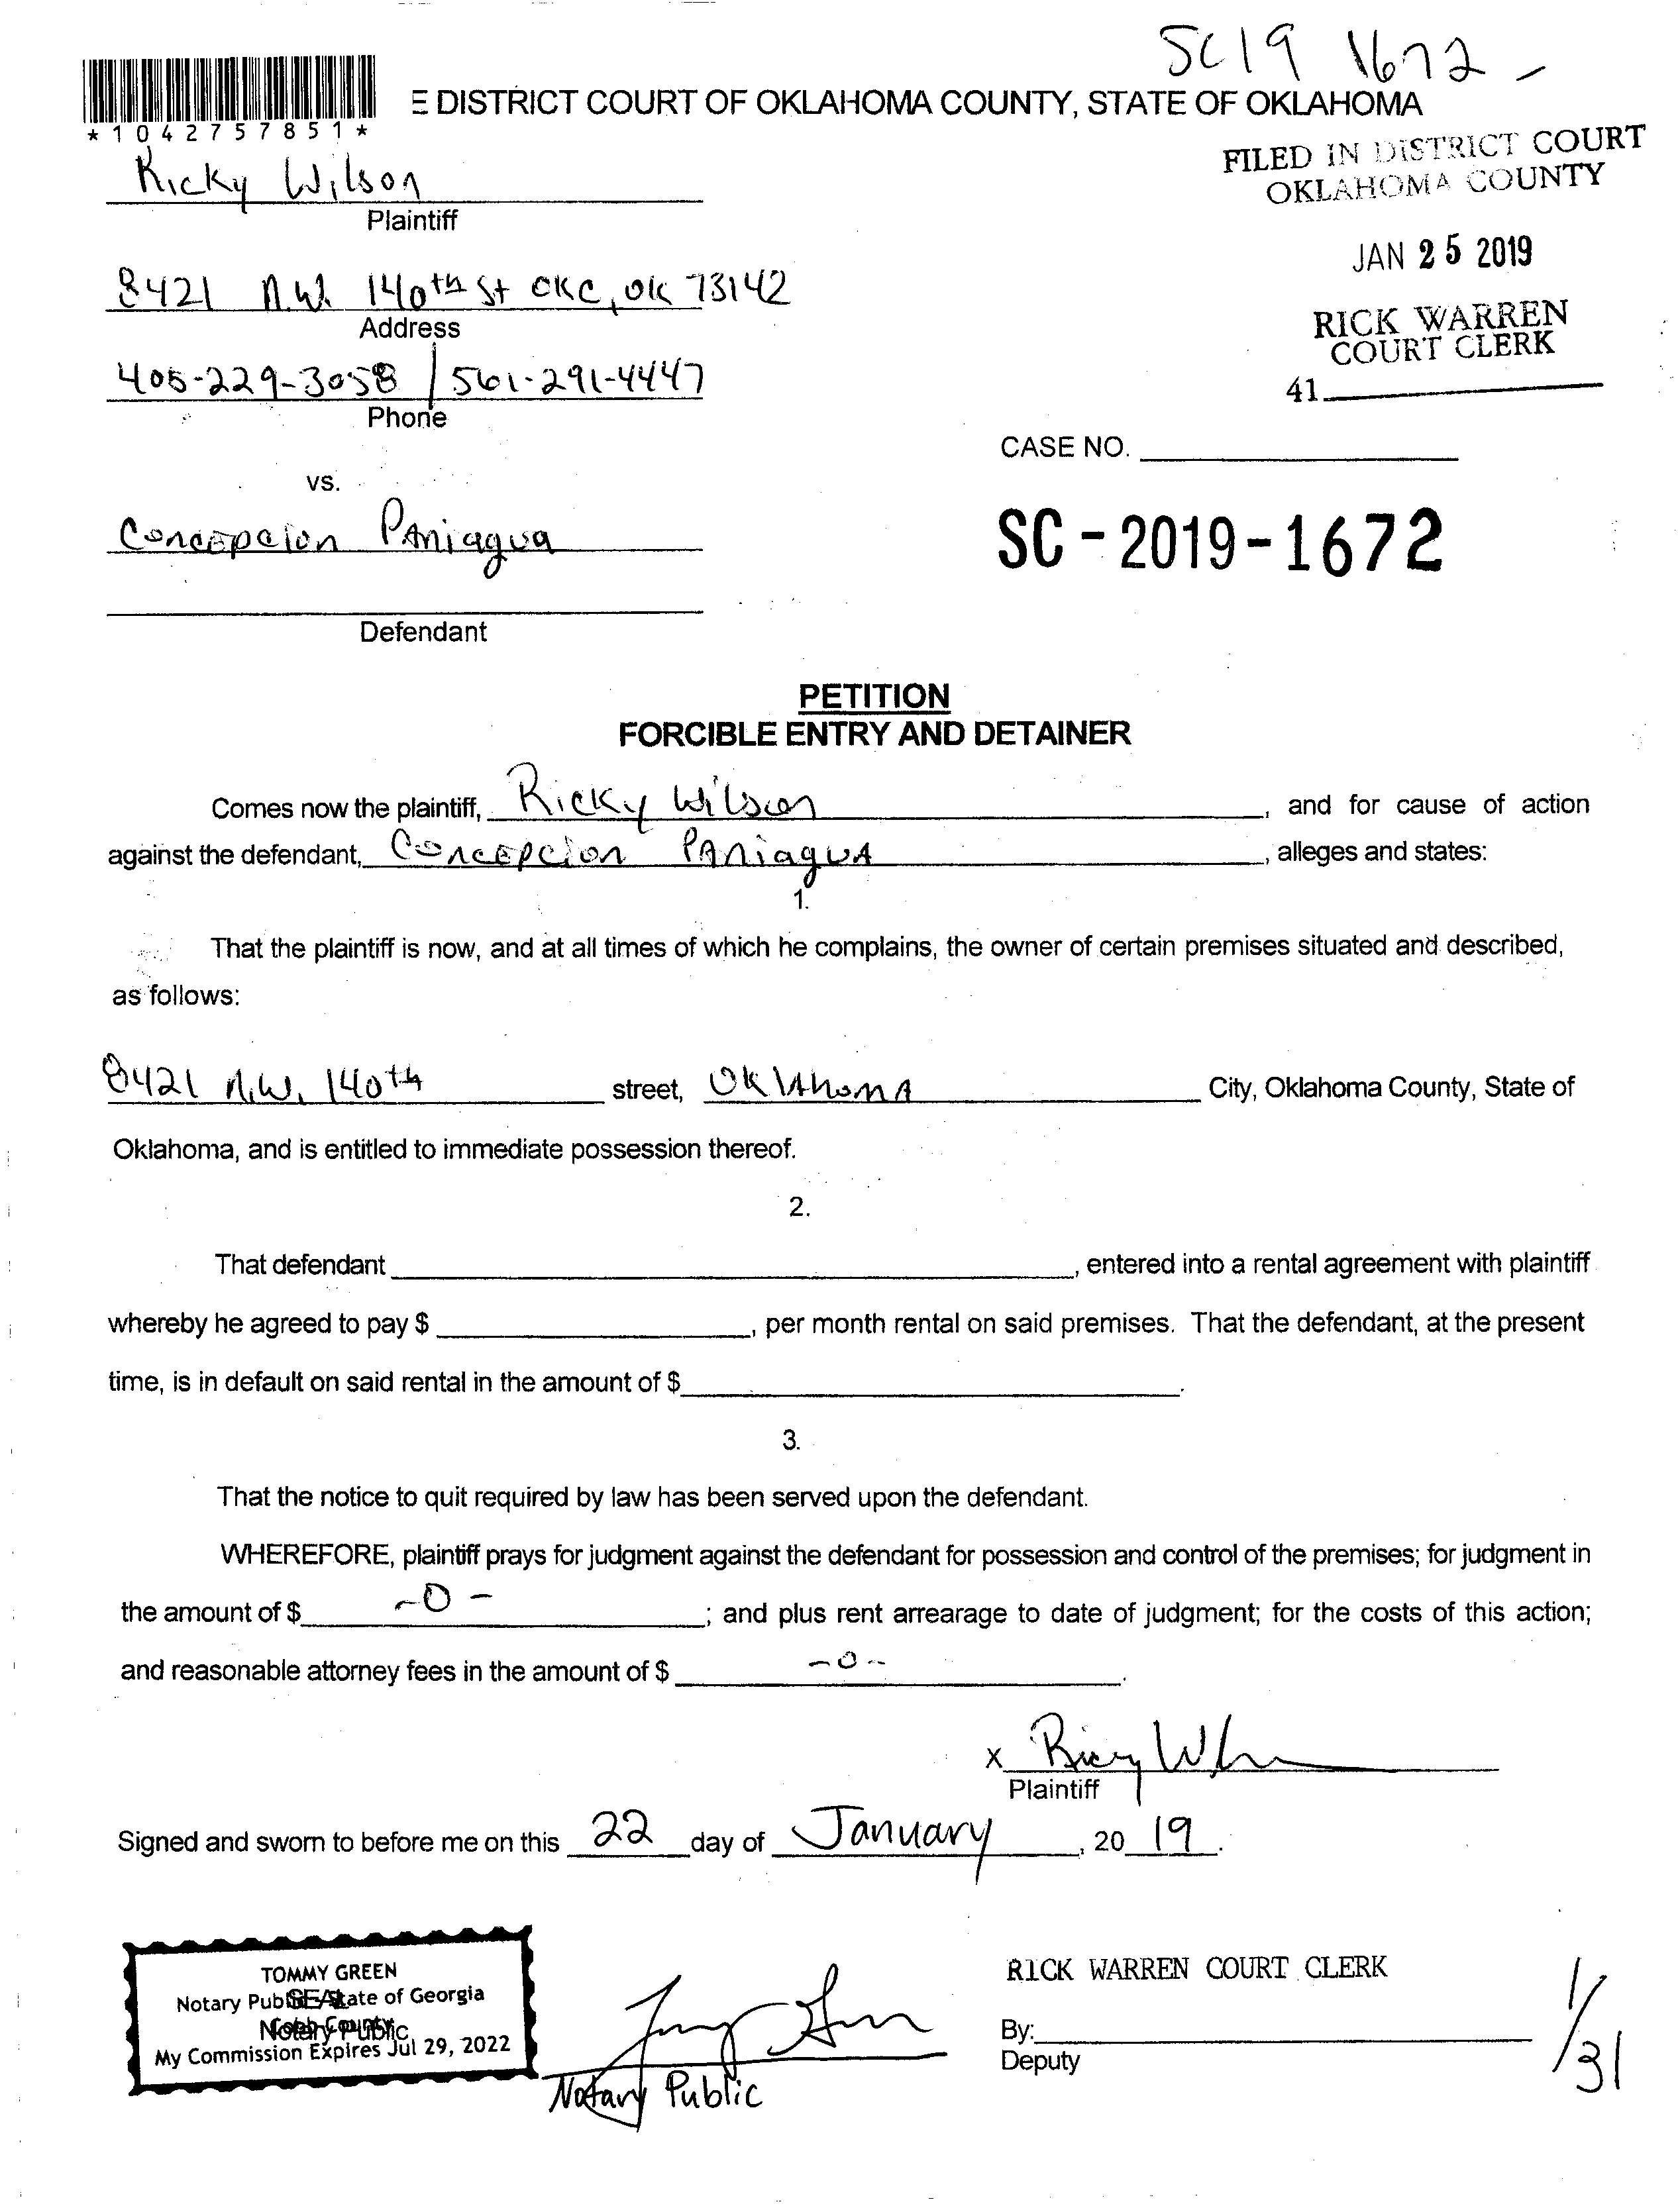 SC19 1672 -
E DISTRICT COURT OF OKLAHOMA COUNTY, STATE OF OKLAHOMA
*1042757851*
FILED IN DISTRICT COURT
OKLAHOMA COUNTY
Ricky Wilson
Plaintiff
JAN 25 2019
8421 N.W. 140th St OKC, OK 73142
Address
RICK WARREN
COURT CLERK
405-229-3058 / 561-291-4447
Phone
41
CASE NO.
vs.
Concepcion Paniagua
SC-2019-1672
Defendant
PETITION
FORCIBLE ENTRY AND DETAINER
Comes now the plaintiff, Ricky Wilson, and for cause of action
against the defendant, Concepcion Paniagua, alleges and states:
1.
That the plaintiff is now, and at all times of which he complains, the owner of certain premises situated and described,
as follows:
8421 N.W. 140th street, Oklahoma City, Oklahoma County, State of
Oklahoma, and is entitled to immediate possession thereof.
2.
That defendant , entered into a rental agreement with plaintiff
whereby he agreed to pay $ , per month rental on said premises. That the defendant, at the present
time, is in default on said rental in the amount of $ .
3.
That the notice to quit required by law has been served upon the defendant.
WHEREFORE, plaintiff prays for judgment against the defendant for possession and control of the premises; for judgment in
the amount of $ -0- ; and plus rent arrearage to date of judgment; for the costs of this action;
and reasonable attorney fees in the amount of $ -0- .
x
Plaintiff
Signed and sworn to before me on this 22 day of January, 20 19.
TOMMY GREEN
Notary Public State of Georgia
SEAL
Cobb County
Notary Public
My Commission Expires Jul 29, 2022
Notary Public
RICK WARREN COURT CLERK
By:
Deputy
1/31